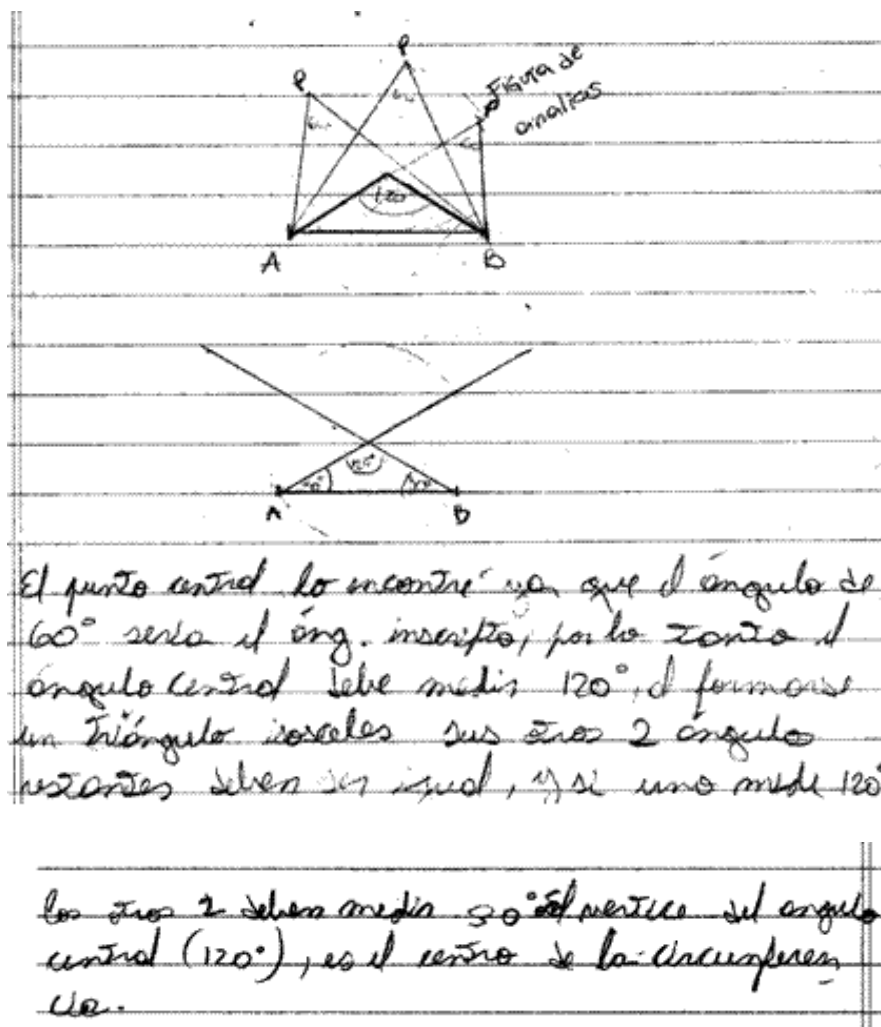 P
P
Figura de
analisis
120
A B
120°
30° 30°
A B
El punto central lo encontré ya que el ángulo de
60° seria el áng. inscripto, por lo tanto el
ángulo central debe medir 120°, al formarse
un triángulo isosceles sus otros 2 ángulo
restantes deben ser igual, y si uno mide 120°
los otros 2 deben medir 30° el vertice del angulo
central (120°), es el centro de la circunferen
cia.